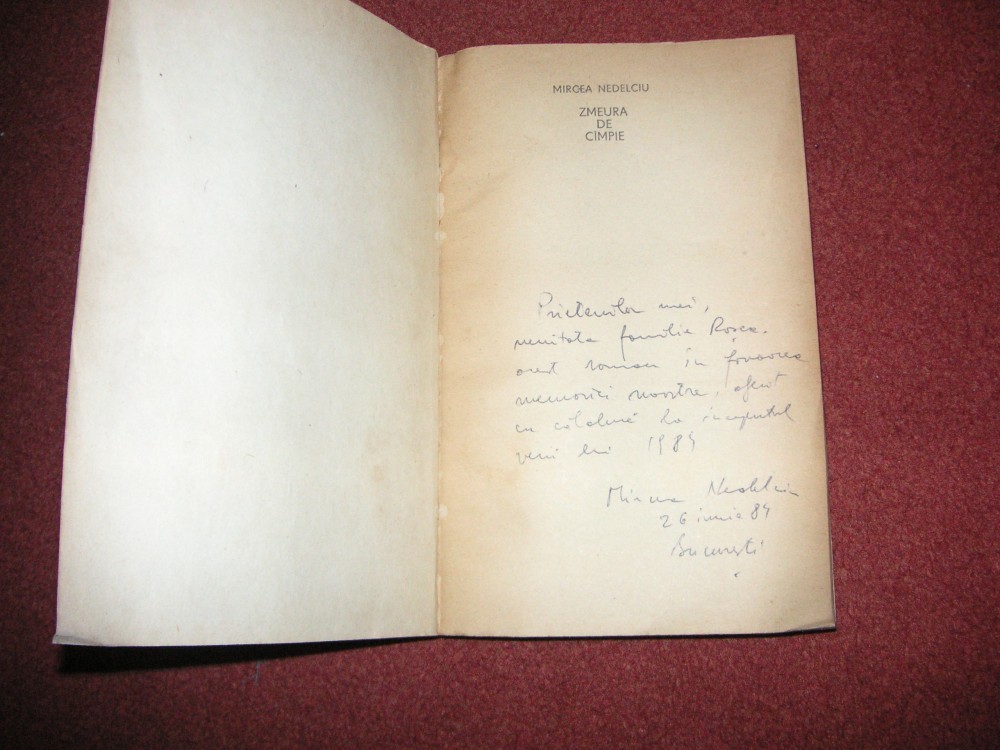 MIRCEA NEDELCIU
ZMEURA
DE
CÎMPIE
Prietenilor mei,
familia Roșca.
acest roman în favoarea
memoriei noastre, oferit
cu căldură la începutul
verii lui 1984
Mircea Nedelciu
26 iunie 84
București